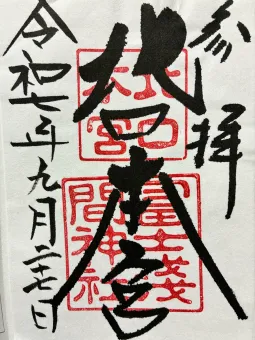 参拝
北口本宮
令和七年九月二十七日
北口
本宮
冨士淺
間神社